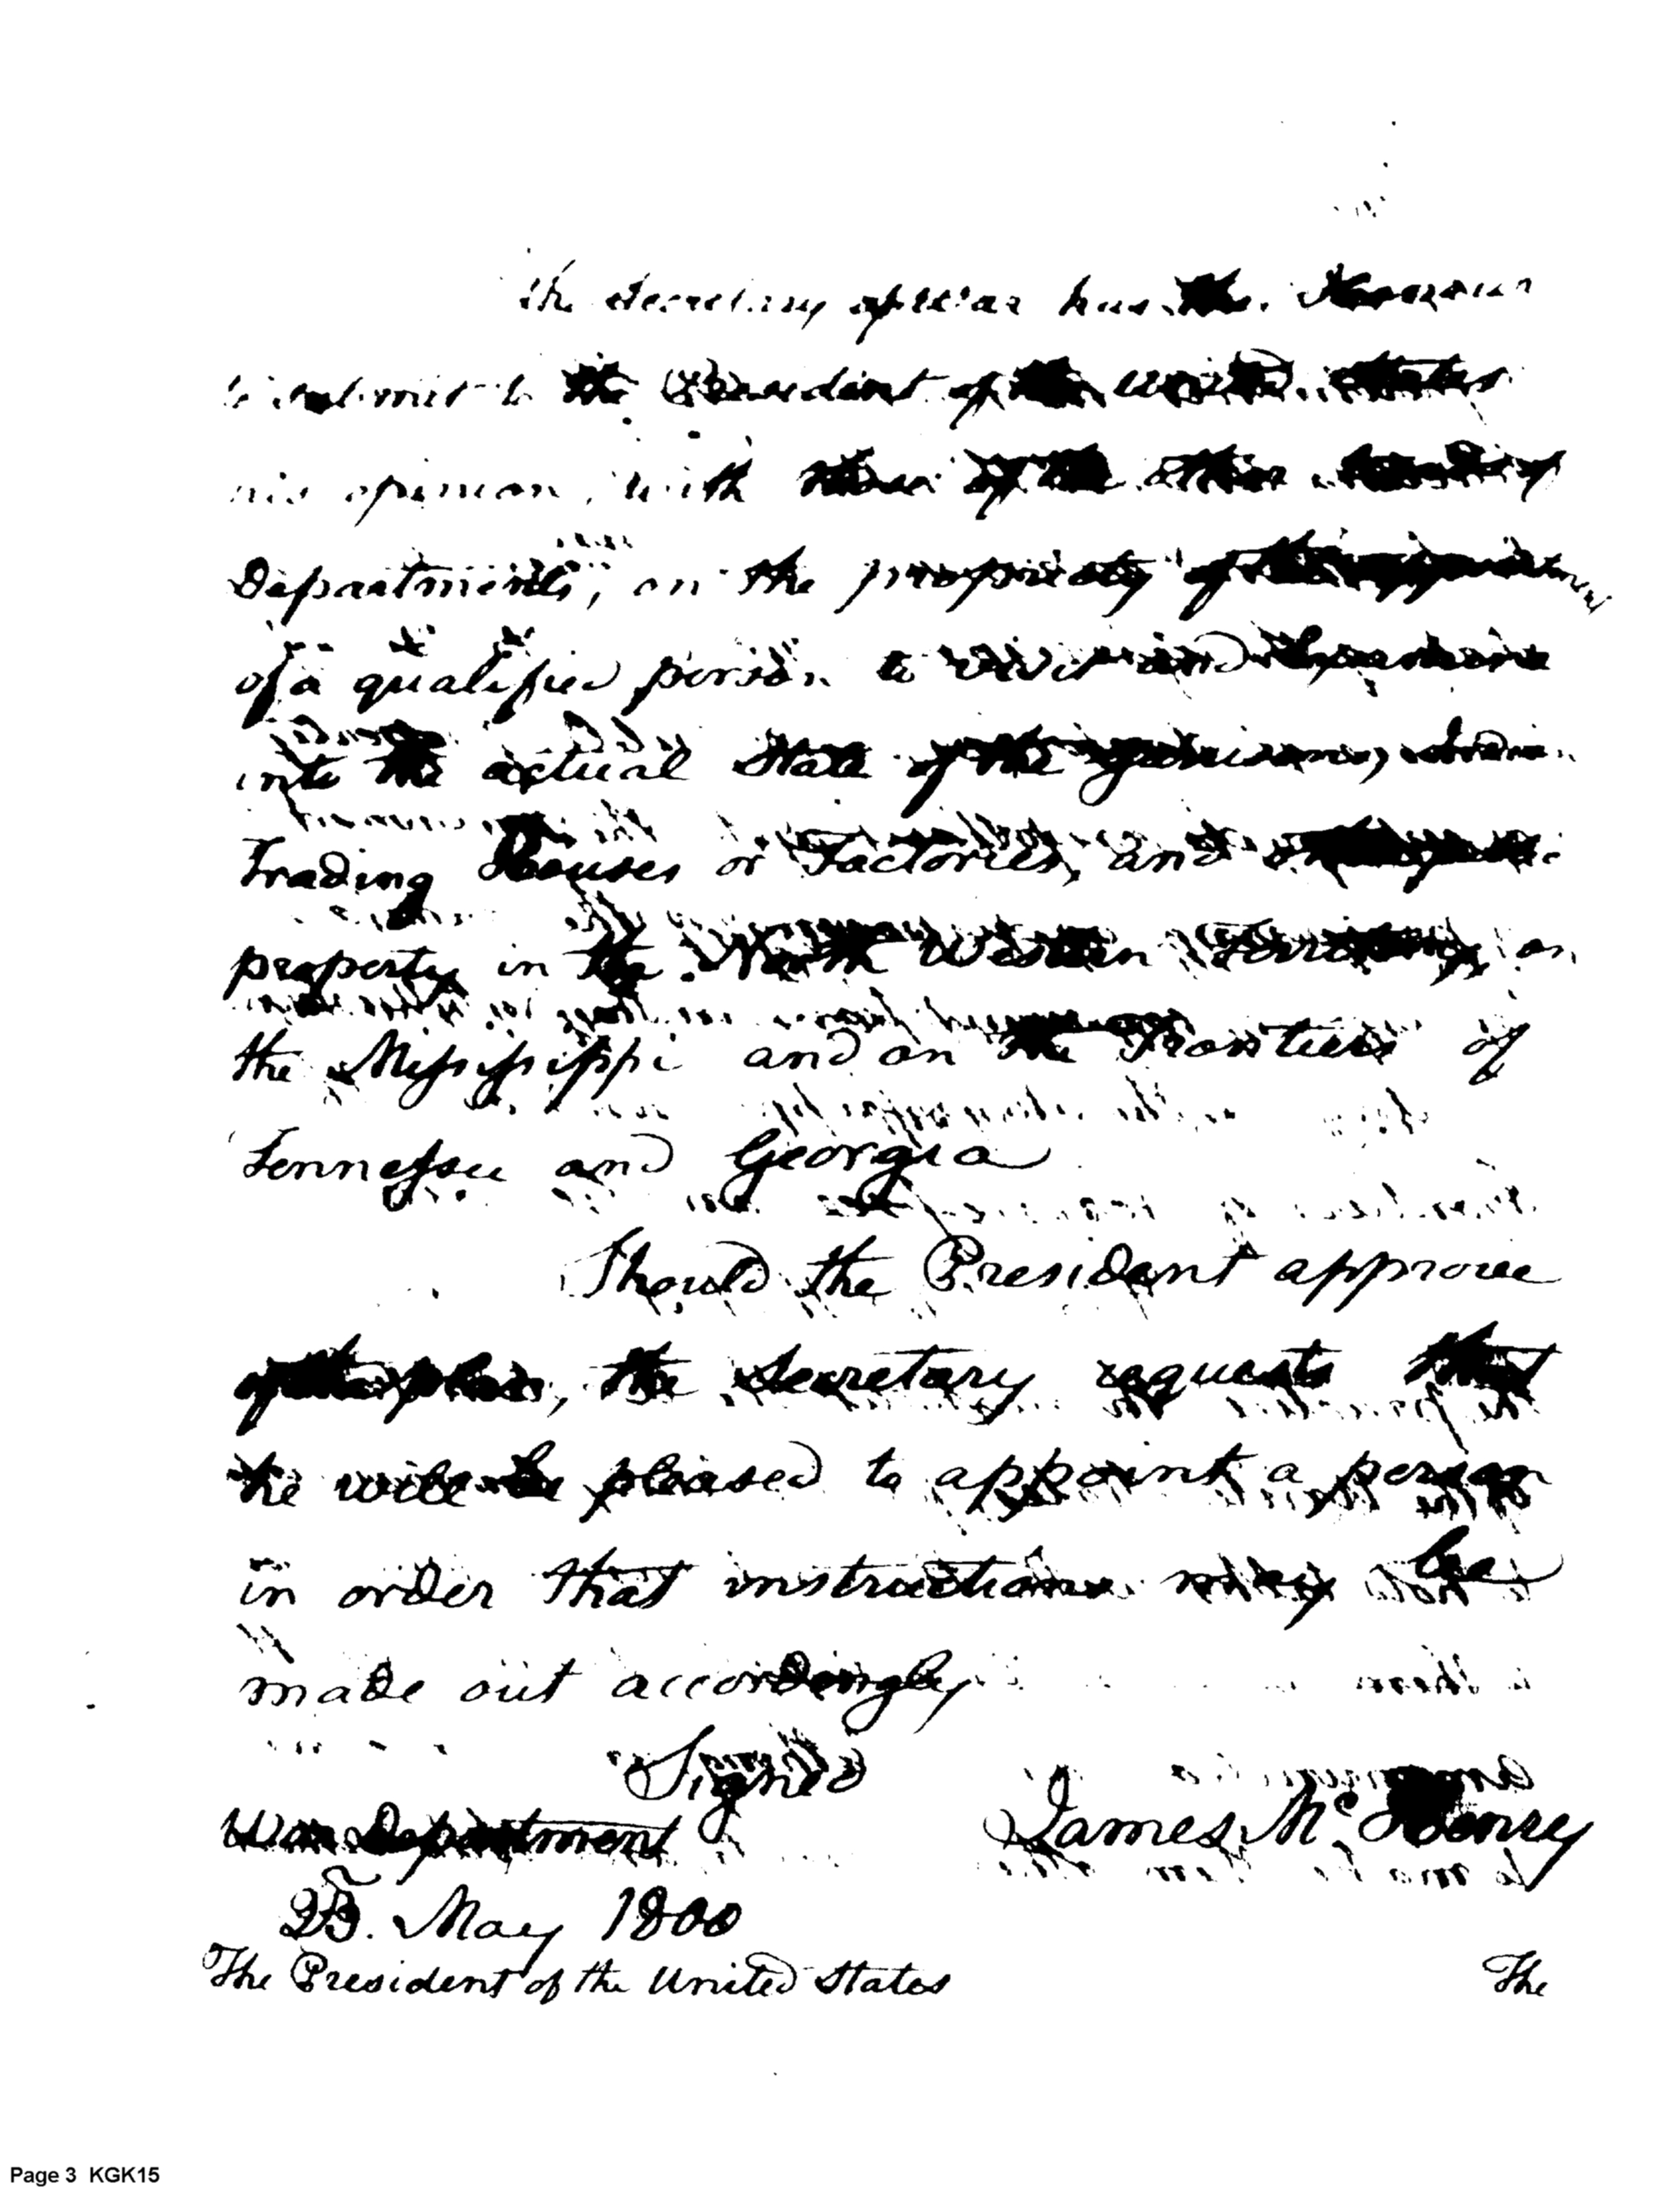 The Secretary of War has the Honour
to submit to the President of the United States
his opinion, with those of the other
Departments, on the propriety of the
of a qualified person to visit and
into the actual State of the
Trading Houses or Factories, and
property in the North Western Territory, on
the Missisippi and on the Frontiers of
Tennessee and Georgia
Should the President approve
of the plan, the Secretary requests that
he will be pleased to appoint a person
in order that instructions may be
made out accordingly
Signed
War Department James Mc. Henry
May 1800
The President of the United States The
Page 3 KGK15